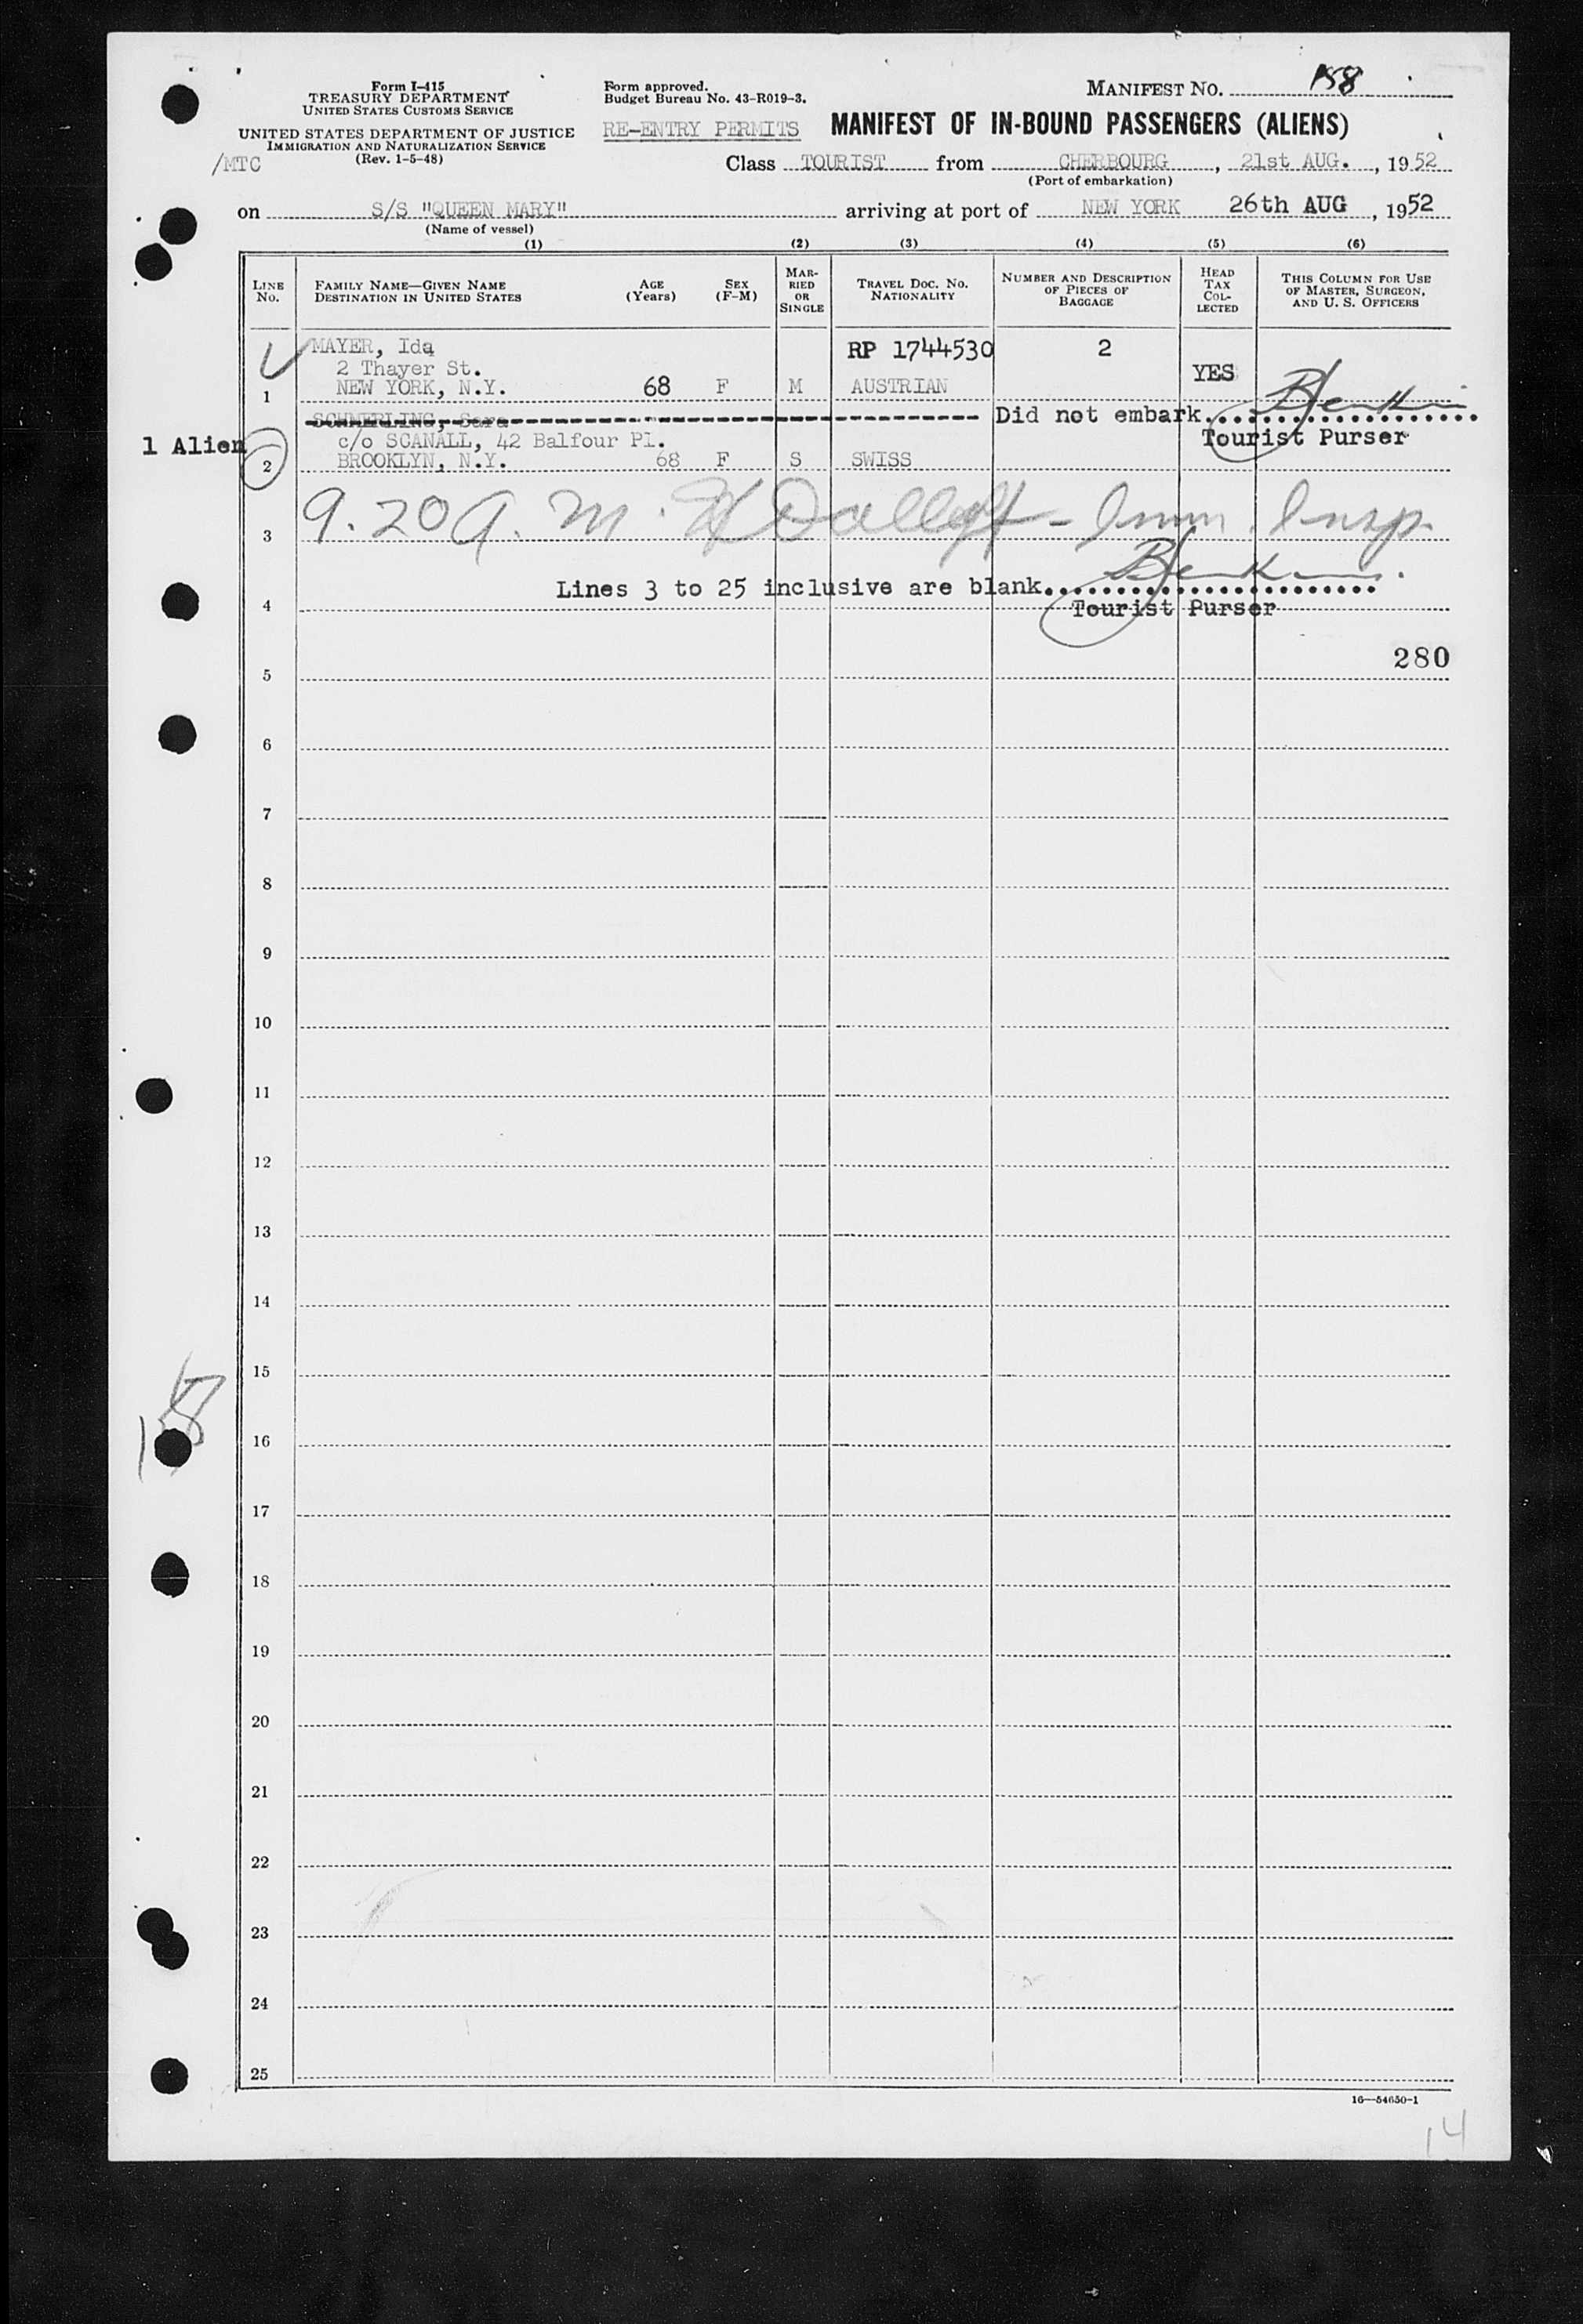 Form I-415
TREASURY DEPARTMENT
UNITED STATES CUSTOMS SERVICE
UNITED STATES DEPARTMENT OF JUSTICE
IMMIGRATION AND NATURALIZATION SERVICE
(Rev. 1-5-48)
/MTC
Form approved.
Budget Bureau No. 43-R019-3.
RE-ENTRY PERMITS
MANIFEST NO. 158
MANIFEST OF IN-BOUND PASSENGERS (ALIENS)
Class TOURIST from CHERBOURG, 21st AUG., 1952
(Port of embarkation)
on S/S "QUEEN MARY" arriving at port of NEW YORK 26th AUG, 1952
(Name of vessel)
(1) (2) (3) (4) (5) (6)
LINE NO.
FAMILY NAME—GIVEN NAME
DESTINATION IN UNITED STATES
AGE (Years)
SEX (F-M)
MARRIED OR SINGLE
TRAVEL DOC. NO.
NATIONALITY
NUMBER AND DESCRIPTION OF PIECES OF BAGGAGE
HEAD TAX COLLECTED
THIS COLUMN FOR USE OF MASTER, SURGEON, AND U. S. OFFICERS
MAYER, Ida RP 1744530 2
2 Thayer St. YES
1 NEW YORK, N.Y. 68 F M AUSTRIAN
SCHMERLING, Sara Did not embark.
1 Alien c/o SCANALL, 42 Balfour Pl. Tourist Purser
2 BROOKLYN, N.Y. 68 F S SWISS
3 9.20 A.M. - Imm. Insp.
Lines 3 to 25 inclusive are blank.
4 Tourist Purser
280
5
6
7
8
9
10
11
12
13
14
15
158
16
17
18
19
20
21
22
23
24
25
16—54650-1
14